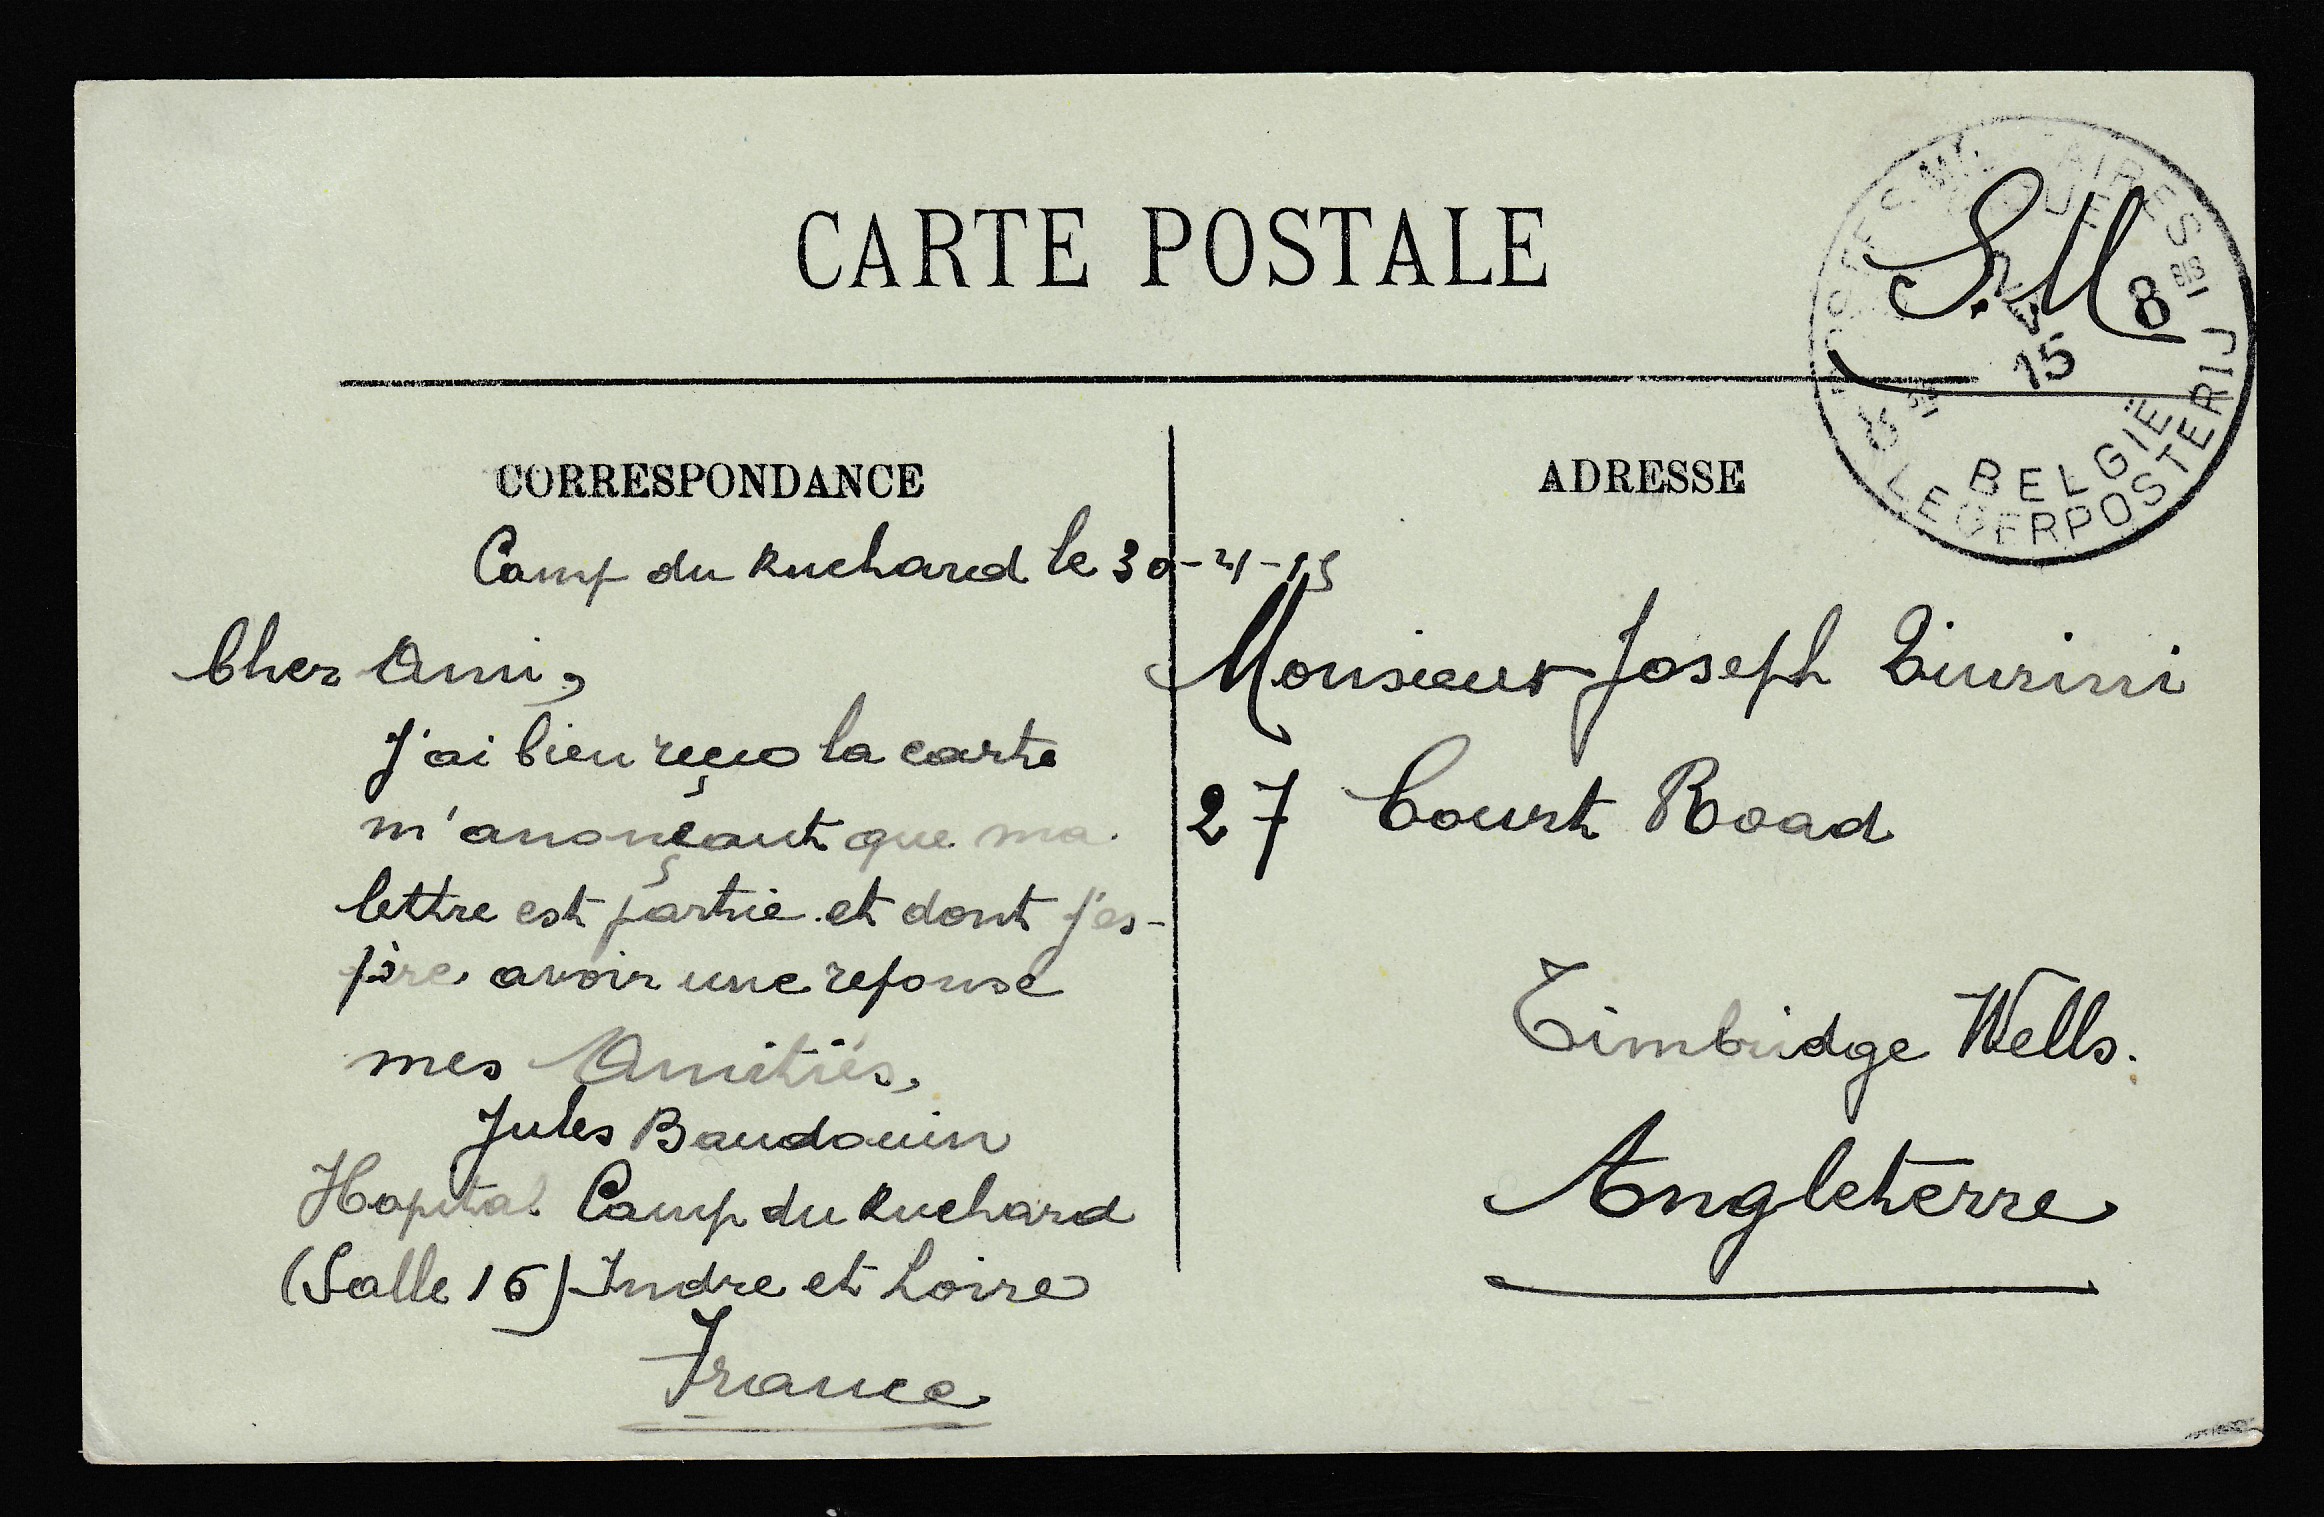 CARTE POSTALE
S.M
POSTES MILITAIRES
BELGIQUE
8BIS
V
15
8BIS
BELGIË
LEGERPOSTERIJ
CORRESPONDANCE
Camp du Ruchard le 30-4-15
Cher Ami,
J'ai bien reçu la carte
m'anonçant que ma
lettre est partie et dont j'es-
père avoir une reponse
mes Amitiés,
Jules Baudouin
Hopital Camp du Ruchard
(Salle 16) Indre et Loire
France
ADRESSE
Monsieur Joseph
27 Court Road
Timbridge Wells.
Angleterre